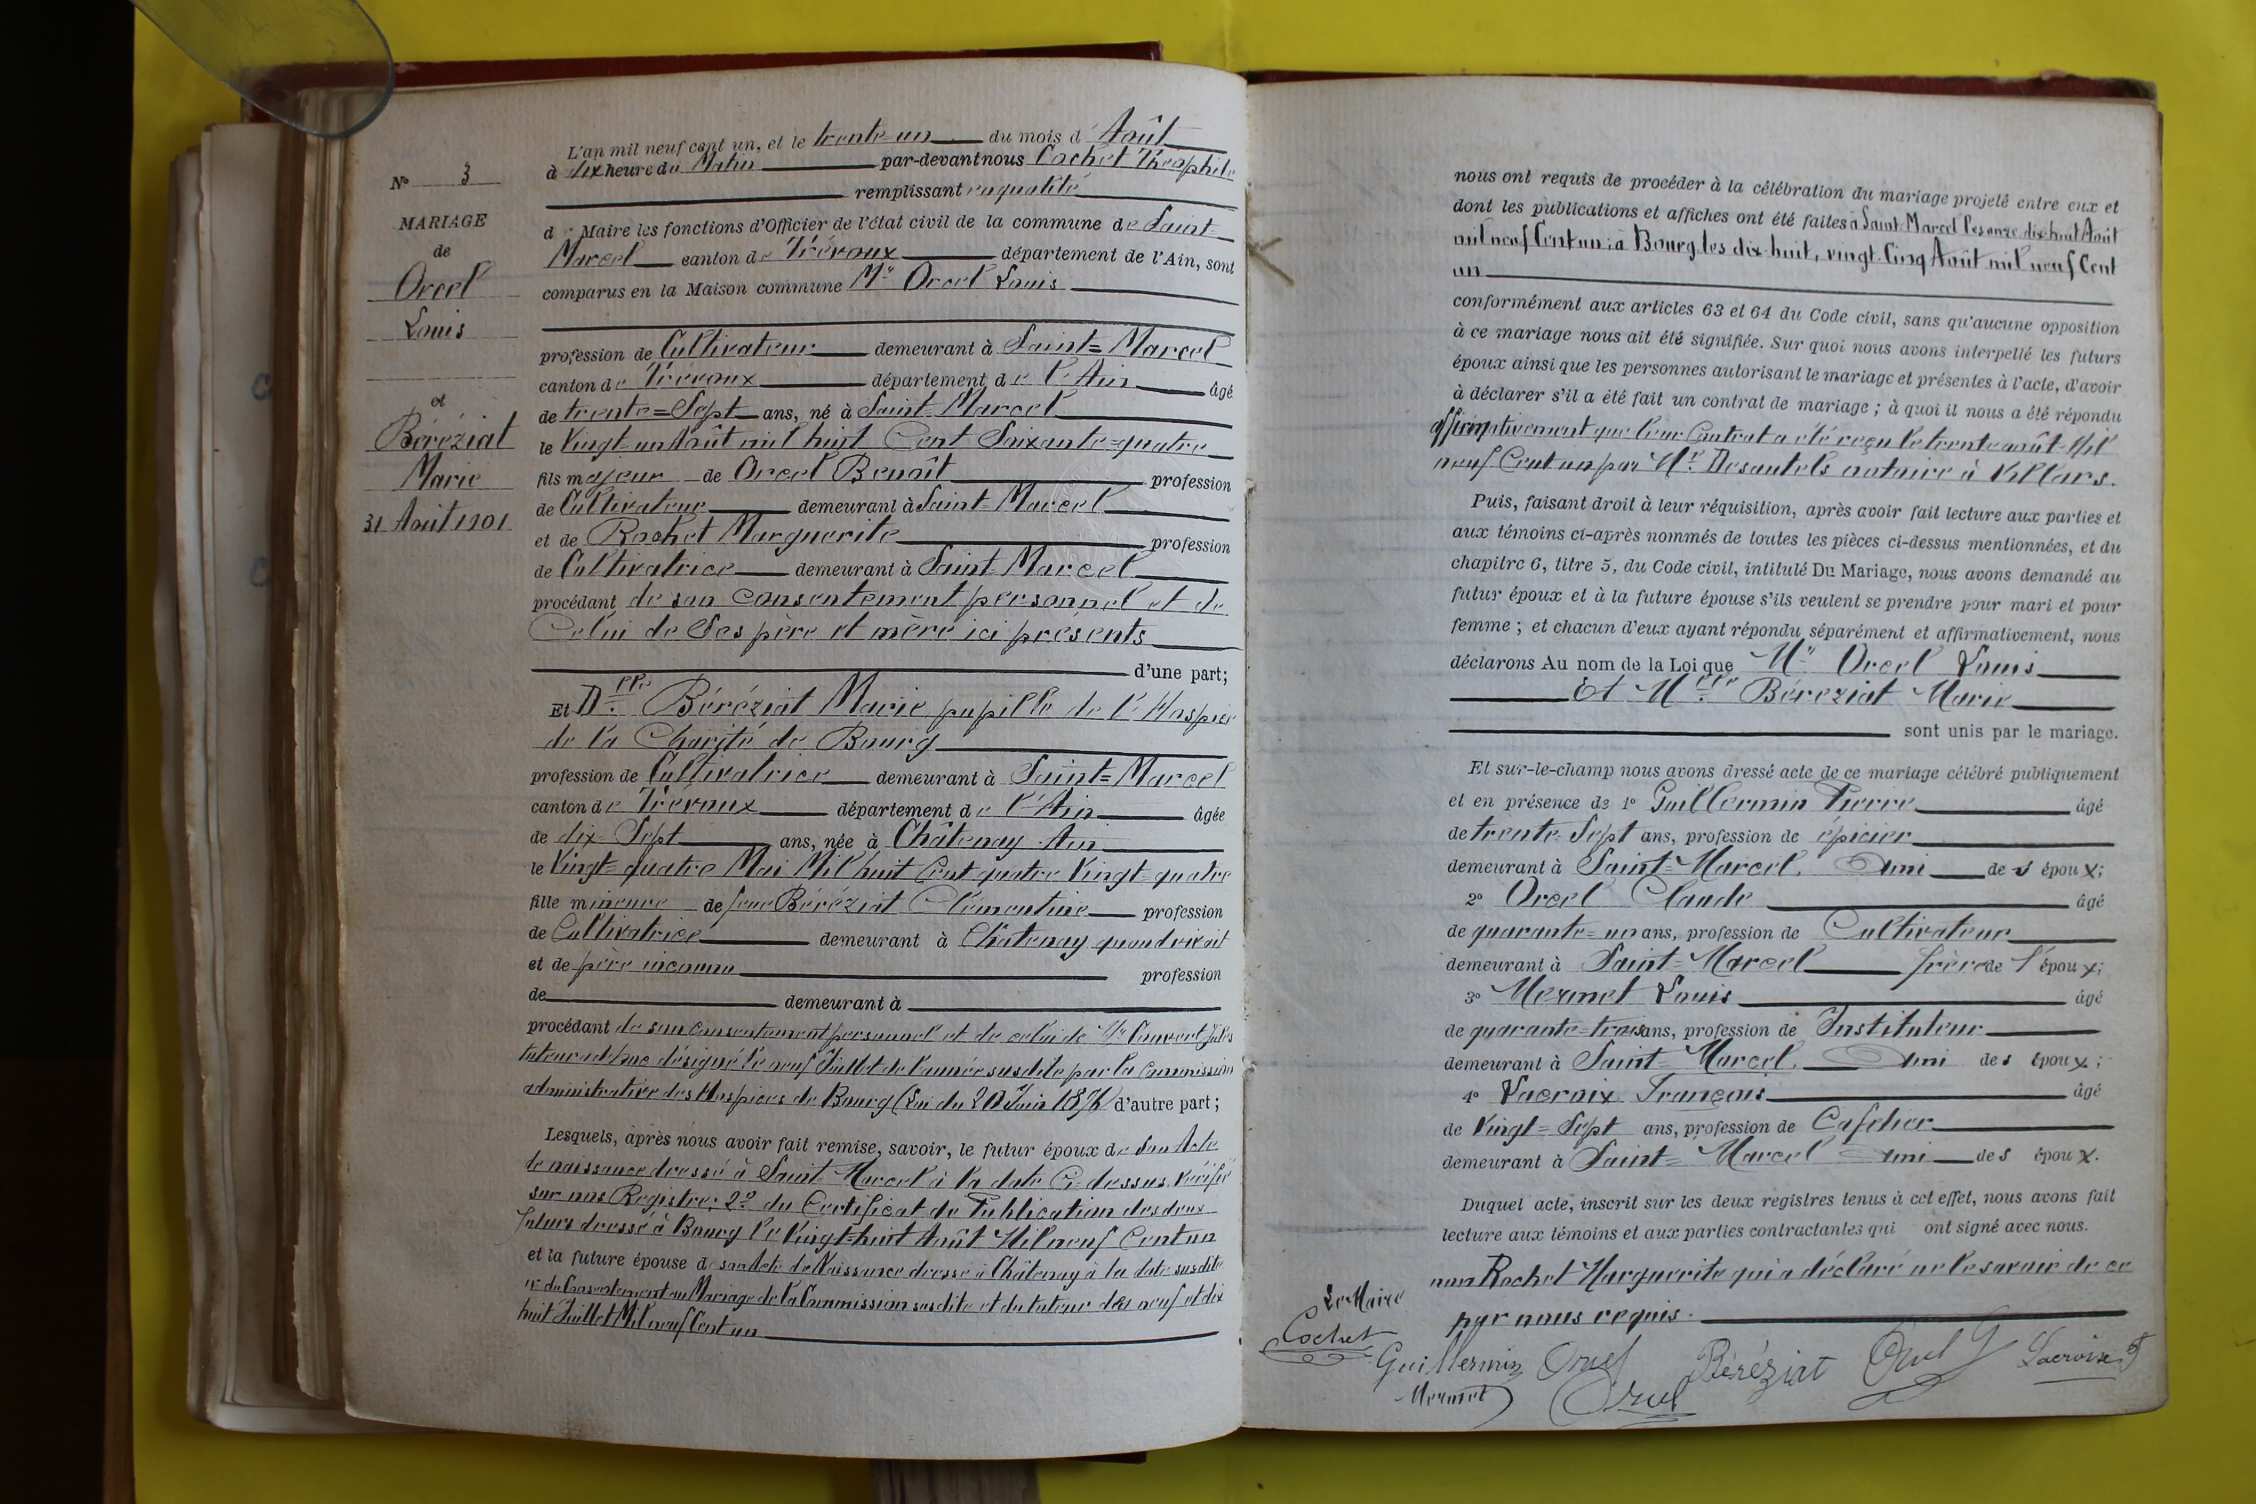 N° 3
MARIAGE
de
Orcel
Louis
et
Béréziat
Marie
31 Août 1901
L'an mil neuf cent un, et le trente-un du mois d'Août
à dix heure du Matin par-devant nous Cochet Théophile
remplissant en qualité
d Maire les fonctions d'Officier de l'état civil de la commune de Saint-
Marcel canton de Trévoux département de l'Ain, sont
comparus en la Maison commune Mr Orcel Louis
profession de Cultivateur demeurant à Saint=Marcel
canton de Trévoux département de l'Ain âgé
de trente=Sept ans, né à Saint Marcel
le Vingt un Août mil huit Cent Soixante=quatre
fils majeur de Orcel Benoît profession
de Cultivateur demeurant à Saint=Marcel
et de Rochet Marguerite profession
de Cultivatrice demeurant à Saint Marcel
procédant de son consentement personnel et de
Celui de Ses père et mère ici présents
d'une part;
Et Dlle Béréziat Marie pupille de l'Hospice
de la Charité de Bourg
profession de Cultivatrice demeurant à Saint=Marcel
canton de Trévoux département de l'Ain âgée
de dix-Sept ans, née à Châtenay Ain
le Vingt=quatre Mai Mil huit Cent quatre Vingt quatre
fille mineure de feue Béréziat Clémentine profession
de Cultivatrice demeurant à Châtenay quand vivait
et de père inconnu profession
de demeurant à
procédant de son consentement personnel et de celui de Mr Convert Jules
tuteur ad hoc désigné le neuf Juillet de l'année susdite par la Commission
administrative des Hospices de Bourg (Loi du 20 Juin 1896) d'autre part;
Lesquels, après nous avoir fait remise, savoir, le futur époux de Son Acte
de naissance dressé à Saint Marcel à la date Ci-dessus, Vérifié
sur nos Registres; 2° du Certificat de Publication des deux
futurs dressé à Bourg le Vingt=huit Août Mil neuf Cent un
et la future épouse de son Acte de Naissance dressé à Châtenay à la date susdite
du Consentement au Mariage de la Commission susdite et du tuteur des neuf et dix
huit Juillet Mil neuf Cent un
nous ont requis de procéder à la célébration du mariage projeté entre eux et
dont les publications et affiches ont été faites à Saint-Marcel les onze, dix-huit Août
mil neuf Cent un; à Bourg les dix-huit, vingt-Cinq Août mil neuf Cent
un
conformément aux articles 63 et 64 du Code civil, sans qu'aucune opposition
à ce mariage nous ait été signifiée. Sur quoi nous avons interpellé les futurs
époux ainsi que les personnes autorisant le mariage et présentes à l'acte, d'avoir
à déclarer s'il a été fait un contrat de mariage; à quoi il nous a été répondu
affirmativement que leur Contrat a été reçu le trente août Mil
neuf Cent un par Mr Desautels notaire à Villars.
Puis, faisant droit à leur réquisition, après avoir fait lecture aux parties et
aux témoins ci-après nommés de toutes les pièces ci-dessus mentionnées, et du
chapitre 6, titre 5, du Code civil, intitulé Du Mariage, nous avons demandé au
futur époux et à la future épouse s'ils veulent se prendre pour mari et pour
femme; et chacun d'eux ayant répondu séparément et affirmativement, nous
déclarons Au nom de la Loi que Mr Orcel Louis
Et Melle Béréziat Marie
sont unis par le mariage.
Et sur-le-champ nous avons dressé acte de ce mariage célébré publiquement
et en présence de 1° Guillermin Pierre âgé
de trente-Sept ans, profession de épicier
demeurant à Saint=Marcel, Ami de s époux;
2° Orcel Claude âgé
de quarante=un ans, profession de Cultivateur
demeurant à Saint=Marcel frère de l'époux;
3° Mermet Louis âgé
de quarante=trois ans, profession de Instituteur
demeurant à Saint=Marcel, Ami des époux;
4° Lacroix François âgé
de Vingt=Sept ans, profession de Cafetier
demeurant à Saint=Marcel Ami des époux.
Duquel acte, inscrit sur les deux registres tenus à cet effet, nous avons fait
lecture aux témoins et aux parties contractantes qui ont signé avec nous.
non Rochet Marguerite qui a déclaré ne le savoir de ce
par nous requis.
Le Maire
Cochet
Guillermin Orcel Béréziat Orcel Lacroix F
Mermet Orcel